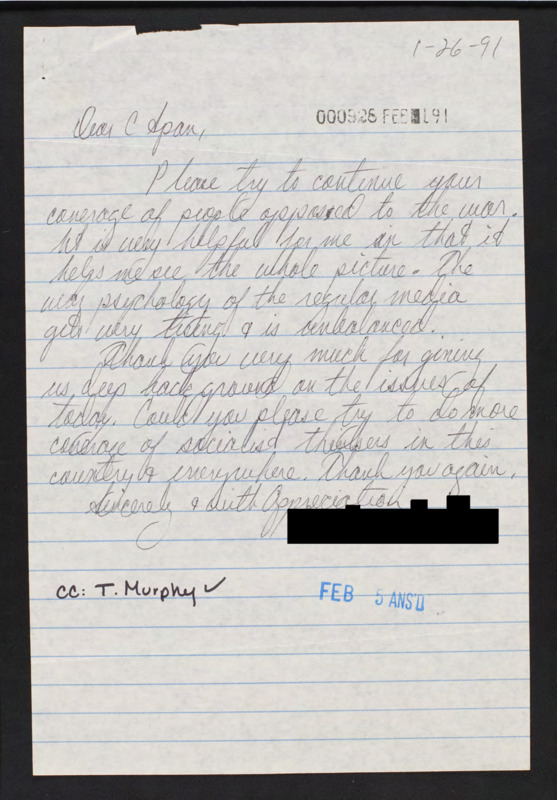 1-26-91
000928 FEB 191
Dear C Span,
Please try to continue your
coverage of people opposed to the war.
It is very helpful for me in that it
helps me see the whole picture. The
psychology of the regular media
gets very tiring & is unbalanced.
Thank you very much for giving
us deep background on the issues of
today. Could you please try to do more
coverage of socialist thinkers in this
country & everywhere. Thank you again,
Sincerely & with Appreciation
cc: T. Murphy ✓
FEB 5 ANS'D